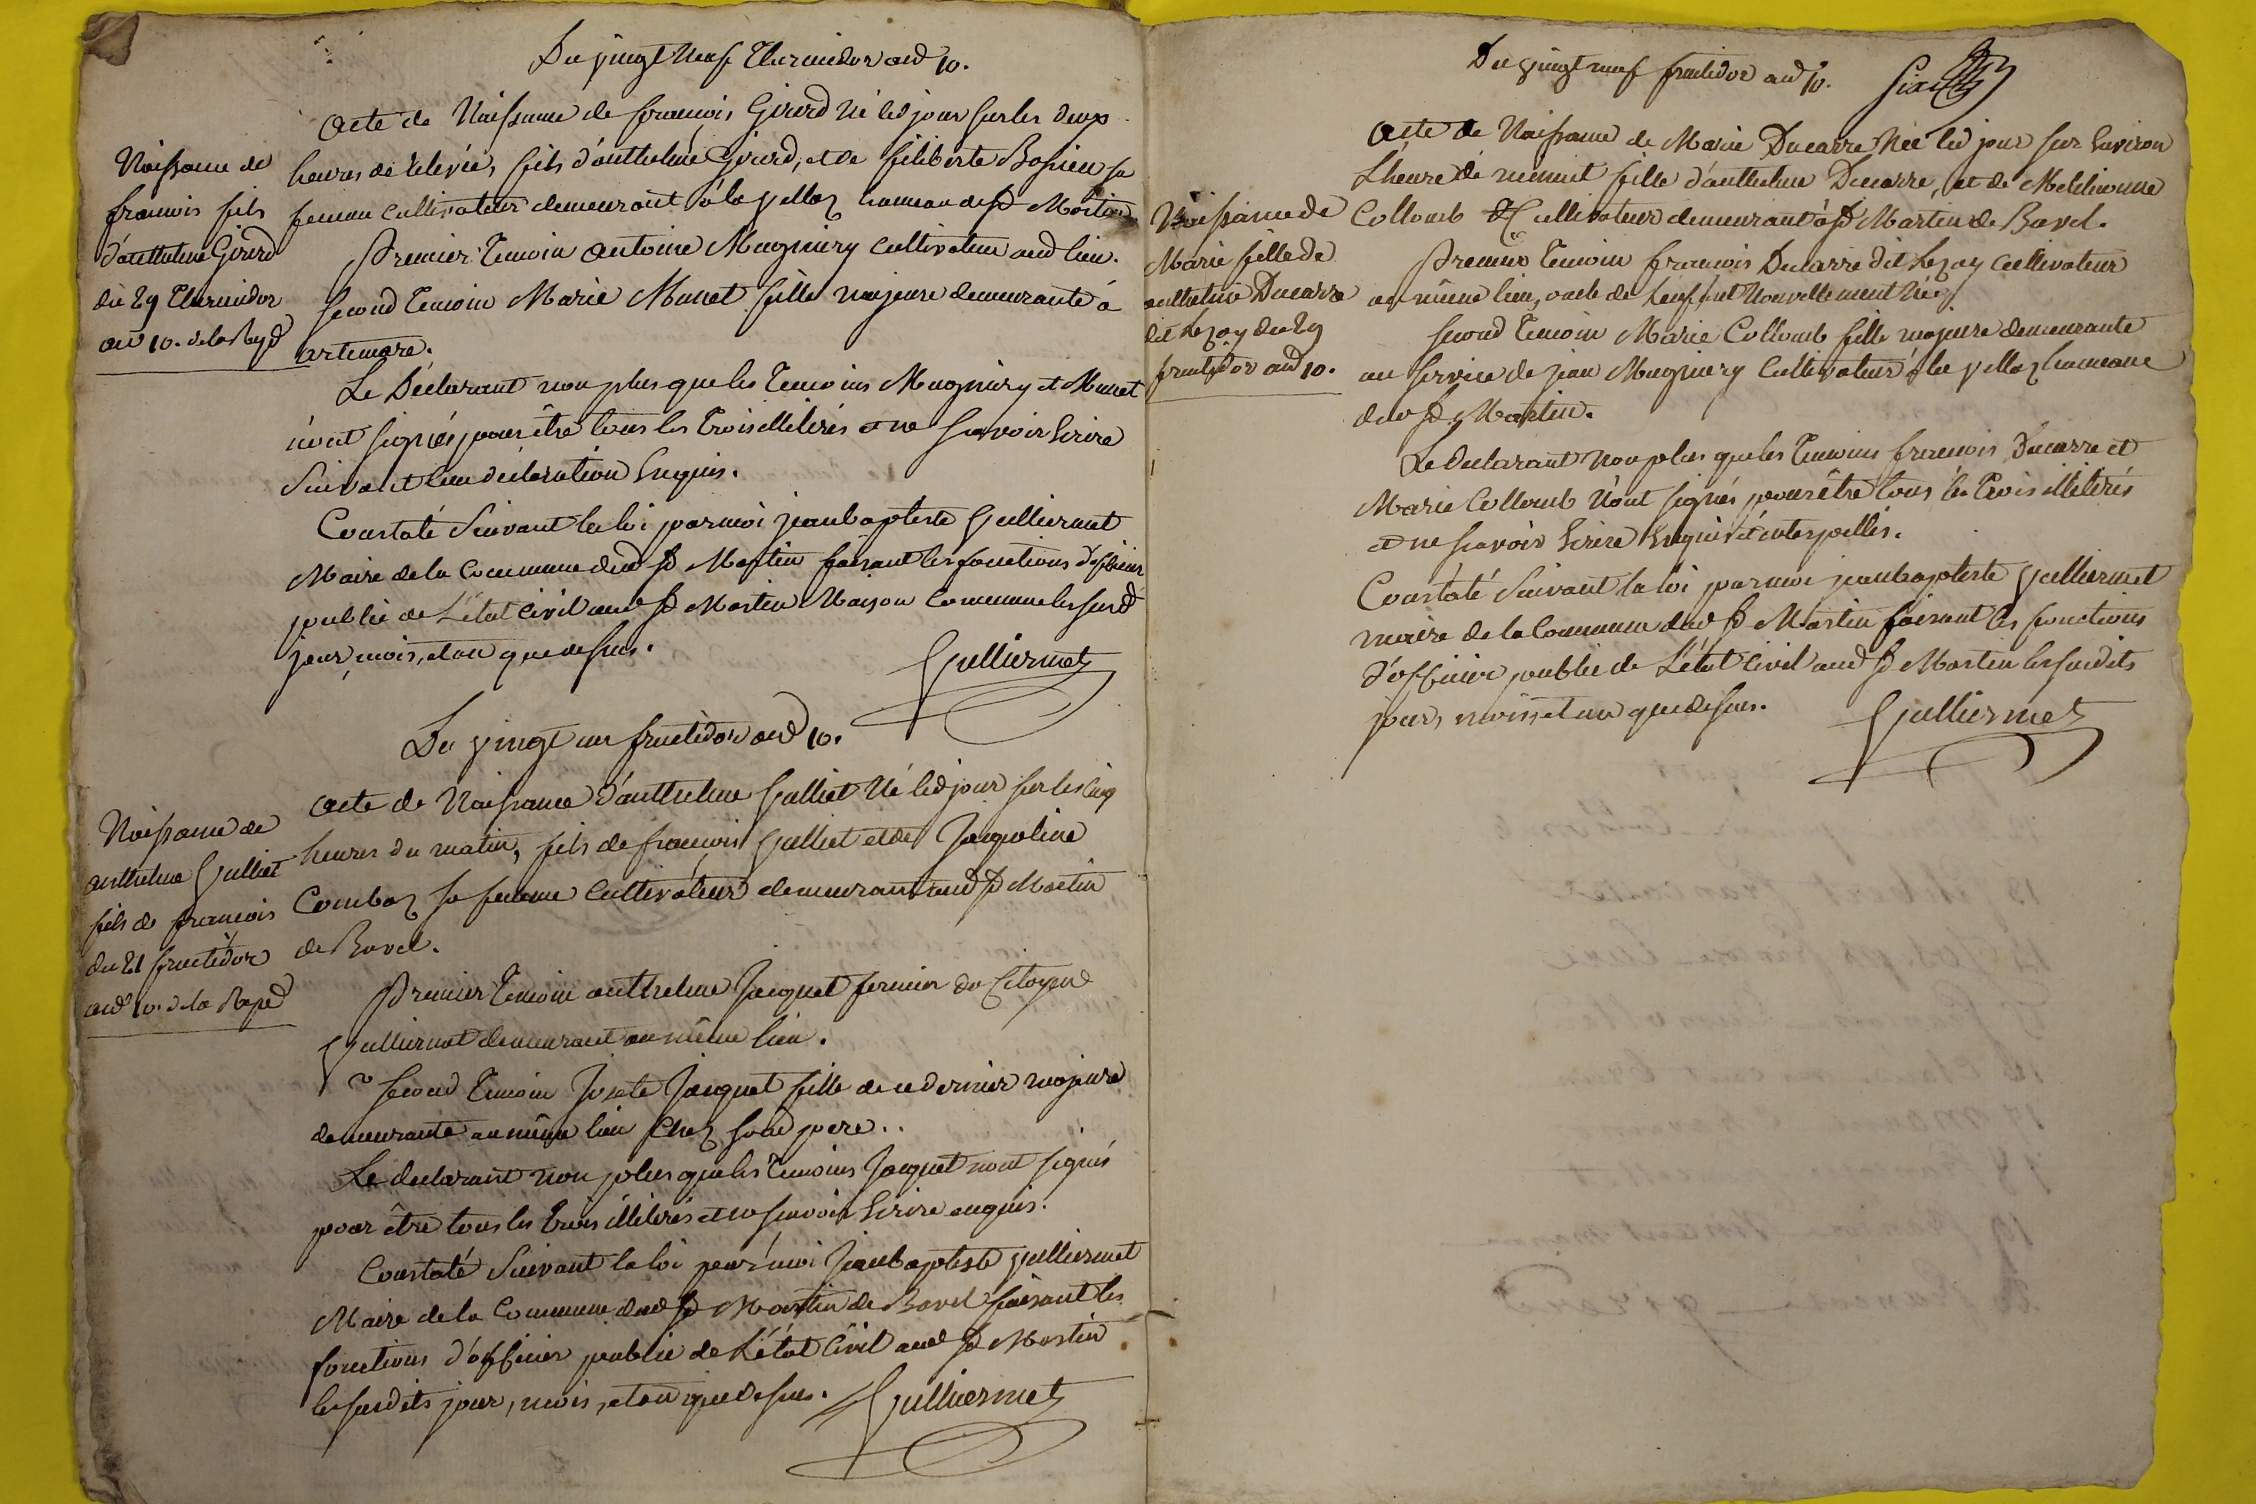 Du vingt Neuf Thermidor and 10.
Acte de Naissance de françois Girerd Né led jour sur les deux
heures de relevée, fils d'anthelme Girerd, et de filiberte Bosieu sa
femme cultivateur demeurant à la vellaz hameau de St Martin
Naissance de
françois fils
d'anthelme Girerd
du 29 Thermidor
and 10. de la Repd
Premier Temoin Antoine Mugniery cultivateur aud lieu.
second Temoin Marie Munet fille majeure demeurante à
artemare.
Le Déclarant non plus que les Temoins Mugniery et Munet
n'ont signés pour être tous les trois illiterés et ne scavoir Ecrire
Suivant leur déclaration Enquis.
Constaté Suivant la loi par moi jean baptiste Gulliermet
Maire de la Commune dud St Martin faisant les fonctions d'officier
public de L'état Civil aud St Martin Maison Commune les susd
jour, mois, et an que dessus.
Gulliermet
Du vingt un fructidor and 10.
Acte de Naissance d'anthelme Gulliet Né led jour sur les cinq
heures du matin, fils de françois Gulliet et de Jaqueline
Combaz sa femme Cultivateur demeurant aud St Martin
de Bavel.
Naissance de
anthelme Gulliet
fils de françois
du 21 fructidor
and 10. de la Repd
Premier Temoin anthelme Jacquet fermier du Citoyend
Gulliermet demeurant au même lieu.
second Temoin Josete Jacquet fille de ce dernier majeure
demeurante au même lieu Chez sond pere..
Le declarant non plus que les Temoins Jacquet nont signés
pour être tous les trois illiterés et ne scavoir Ecrire enquis.
Constaté Suivant la loi par moi Jean baptiste Gulliermet
Maire de la Commune dud St Martin de Bavel faisant les
fonctions d'officier public de L'état Civil aud St Martin
les susdits jour, mois, et an que dessus. Gulliermet
Du vingt neuf fructidor and 10. Six
Acte de Naissance de Marie Ducarre Née led jour sur Environ
L'heure de minuit fille d'anthelme Ducarre, et de Melchionne
Collomb Cultivateur demeurant à St Martin de Bavel.
Naissance de
Marie fille de
anthelme Ducarre
dit Lezay du 29
fructidor and 10.
Premier Temoin françois Ducarre dit Lezay Cultivateur
au même lieu, oncle de l'enfant Nouvellement Née
second Temoin Marie Collomb fille majeure demeurante
au service de jean Mugniery Cultivateur à la vellaz hameau
dud St Martin.
Le declarant Non plus que les Temoins françois Ducarre et
Marie Collomb N'ont signés pour être tous les trois illiterés
et ne scavoir Ecrire Enquis et interpellés.
Constaté Suivant la loi par moi jean baptiste Gulliermet
maire de la Commune dud St Martin faisant les fonctions
d'officier public de L'état Civil aud St Martin les susdits
jour, mois et an que dessus. Gulliermet